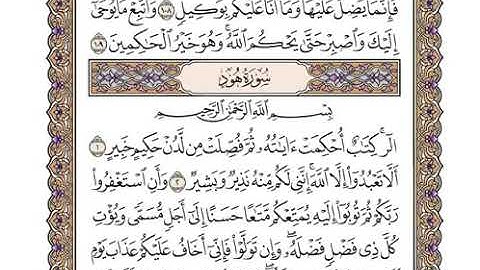 فَإِنَّمَا يَضِلُّ عَلَيْهَا وَمَا أَنَا۠ عَلَيْكُم بِوَكِيلٍ ١٠٨ وَٱتَّبِعْ مَا يُوحَىٰٓ
إِلَيْكَ وَٱصْبِرْ حَتَّىٰ يَحْكُمَ ٱللَّهُ وَهُوَ خَيْرُ ٱلْحَٰكِمِينَ ١٠٩
سُورَةُ هُودٍ
بِسْمِ ٱللَّهِ ٱلرَّحْمَٰنِ ٱلرَّحِيمِ
الٓر كِتَٰبٌ أُحْكِمَتْ ءَايَٰتُهُۥ ثُمَّ فُصِّلَتْ مِن لَّدُنْ حَكِيمٍ خَبِيرٍ ١
أَلَّا تَعْبُدُوٓا۟ إِلَّا ٱللَّهَ إِنَّنِى لَكُم مِّنْهُ نَذِيرٌ وَبَشِيرٌ ٢ وَأَنِ ٱسْتَغْفِرُوا۟
رَبَّكُمْ ثُمَّ تُوبُوٓا۟ إِلَيْهِ يُمَتِّعْكُم مَّتَٰعًا حَسَنًا إِلَىٰٓ أَجَلٍ مُّسَمًّى وَيُؤْتِ
كُلَّ ذِى فَضْلٍ فَضْلَهُۥ وَإِن تَوَلَّوْا۟ فَإِنِّىٓ أَخَافُ عَلَيْكُمْ عَذَابَ يَوْمٍ